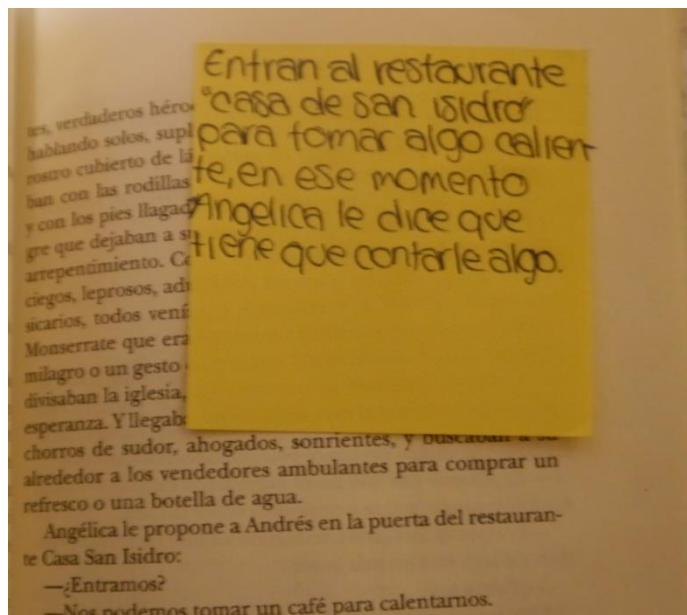 Entran al restaurante
"casa de san isidro"
para tomar algo calien-
te, en ese momento
Angelica le dice que
tiene que contarle algo.
tes, verdaderos héro
hablando solos, supl
rostro cubierto de lá
ban con las rodillas
y con los pies llagad
gre que dejaban a su
arrepentimiento. Co
ciegos, leprosos, adi
sicarios, todos vení
Monserrate que era
milagro o un gesto
divisaban la iglesia,
esperanza. Y llegab
chorros de sudor, ahogados, sonrientes, y buscaban a su
alrededor a los vendedores ambulantes para comprar un
refresco o una botella de agua.
Angélica le propone a Andrés en la puerta del restauran-
te Casa San Isidro:
—¿Entramos?
—Nos podemos tomar un café para calentarnos.